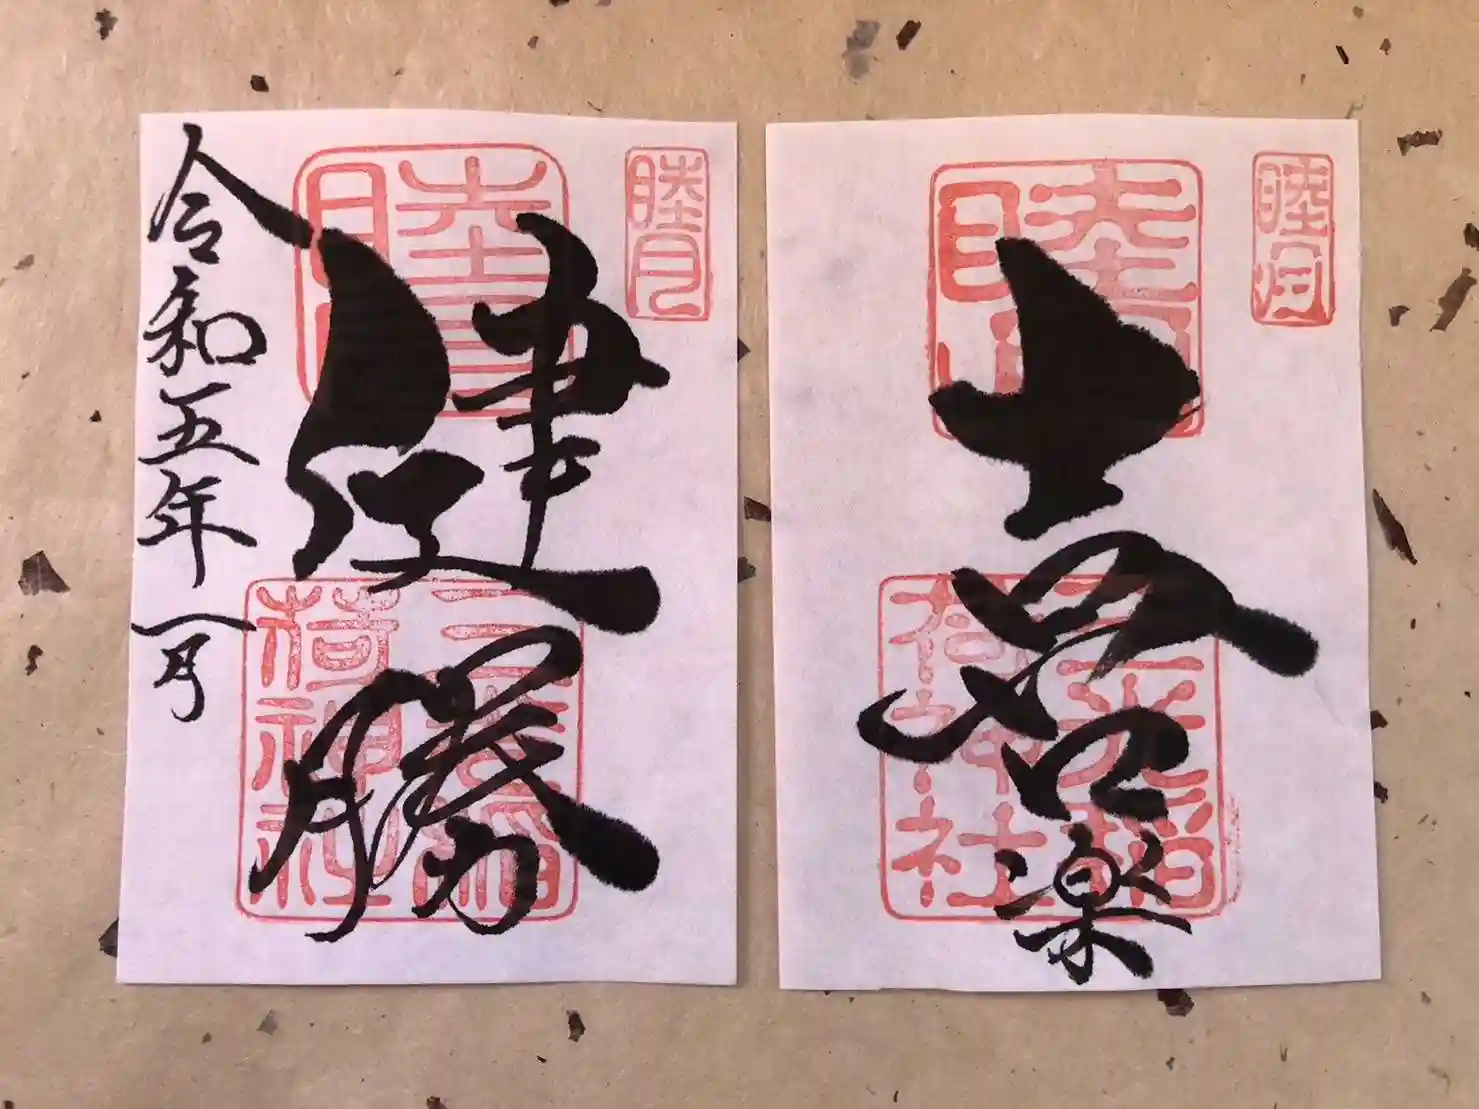 睦月
睦月
健勝
三光稲
荷神社
令和五年一月
睦月
睦月
喜楽
三光稲
荷神社